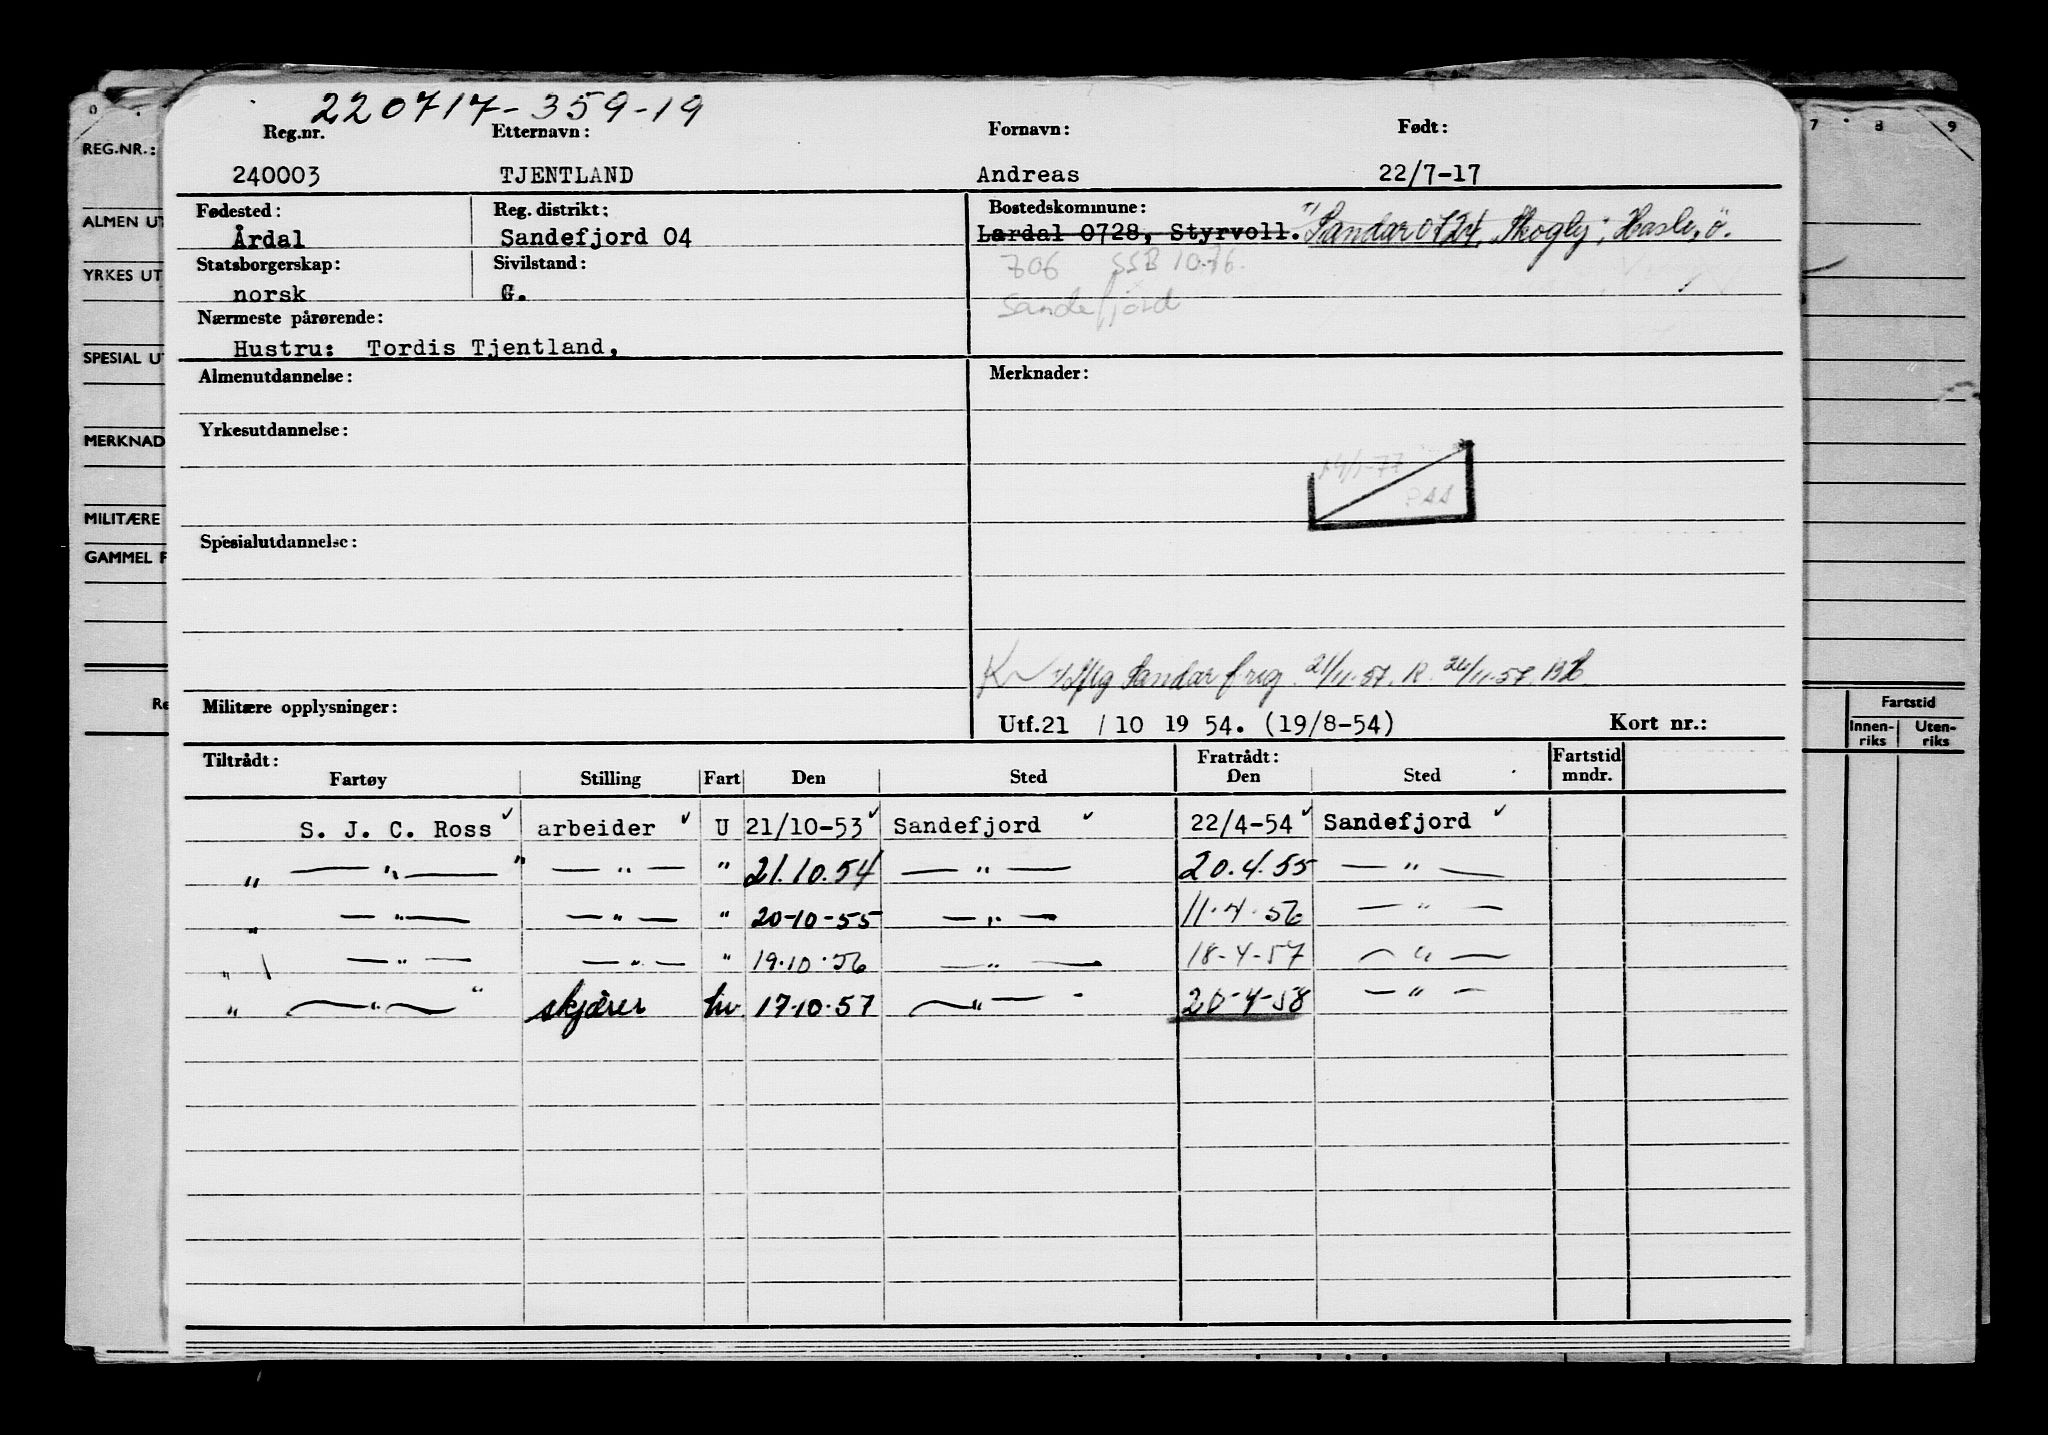 220717-359-19
Reg.nr. Etternavn: Fornavn: Født:
240003 TJENTLAND Andreas 22/7-17
Fødested: Reg. distrikt: Bostedskommune:
Årdal Sandefjord 04 Lardal 0728, Styrvoll. Sandar 0724, Skogly, Hasle, ö.
Statsborgerskap: Sivilstand: 706 SSB 10.76.
norsk G. Sandefjord
Nærmeste pårørende:
Hustru: Tordis Tjentland,
Almenutdannelse: Merknader:
Yrkesutdannelse:
Spesialutdannelse:
Sandar f.reg. 21/11-57. R. 26/11-57.
Militære opplysninger: Utf. 21 / 10 19 54. (19/8-54) Kort nr.:
Tiltrådt: Fratrådt: Fartstid
Fartøy Stilling Fart Den Sted Den Sted mndr.
S. J. C. Ross arbeider U 21/10-53 Sandefjord 22/4-54 Sandefjord
" — " — " — " — " 21.10.54 — " — 20.4.55 — " —
" — " — — " — " 20-10-55 — " — 11.4.56 — " —
" — " — — " — " 19.10.56 — " — 18-4-57 — " —
" — " — " skjærer hv 17-10-57 — " — 20-4-58 — " —
REG.NR.:
ALMEN UT
YRKES UT
SPESIAL UT
MERKNAD
MILITÆRE
GAMMEL F
Re
7 8 9
Fartstid
Innenriks Utenriks